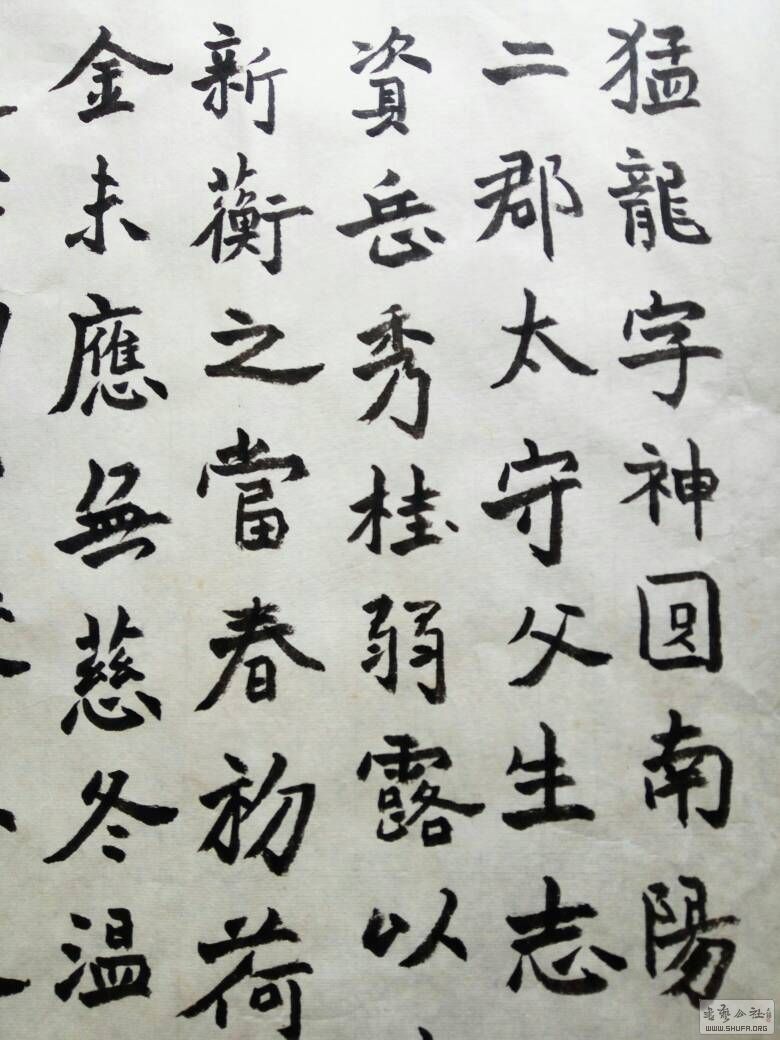 猛龍字神囩南陽
二郡太守父生志
資岳秀桂弱露以
新蘅之當春初荷
金未應無慈冬温
書藝公社
WWW.SHUFA.ORG